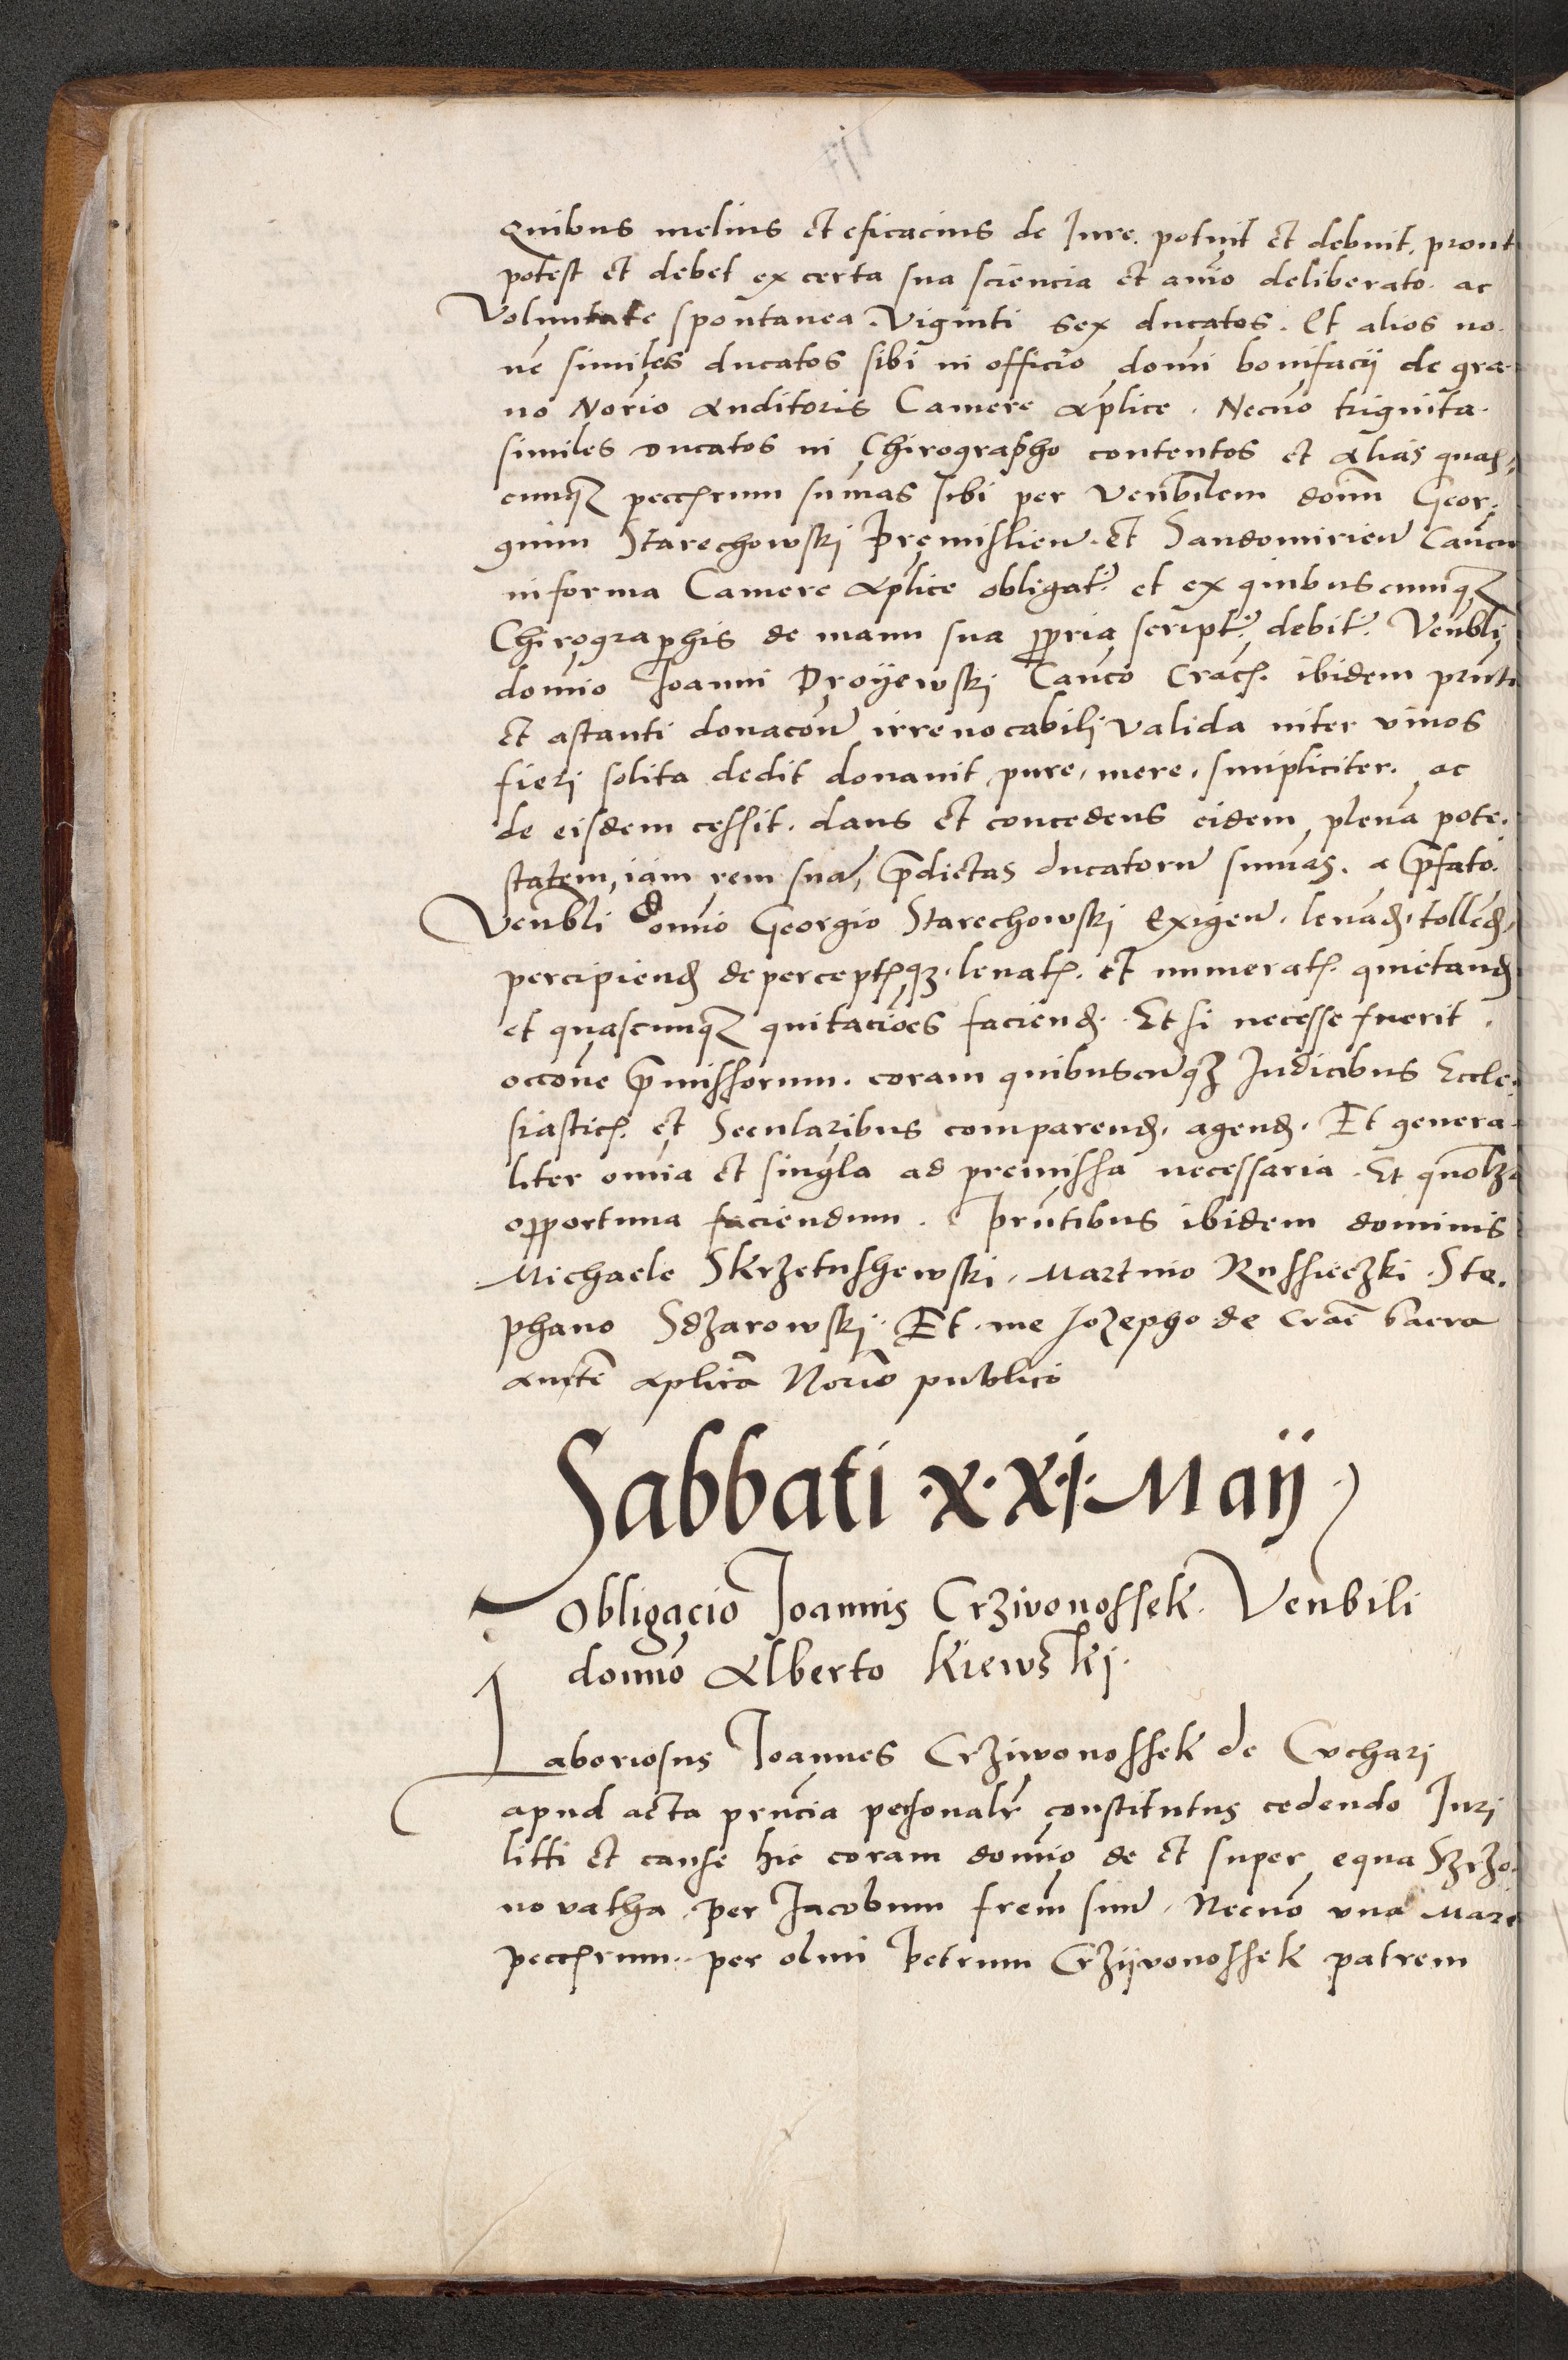 Quibus melius et eficacius de Iure. potuit et debuit. prout
potest et debet ex certa sua sciencia et aīo deliberato. ac
Voluntate spontanea. Viginti sex ducatos. Et alios no.
uē similes ducatos sibi in officio domī bonifacii de gra-
no Nōrio Auditoris Camere Aplīce. Necnō triginta.
similes ducatos in Chirographo contentos et alias quas-
cunqȝ pecc̄rum sūmas sibi per Venbīlem doīm Geor.
gium Starechowskj Premislien̄. et Sandomirien̄ Canc̄u
in forma Camere Aplīce obligat̄. et ex quibuscunqȝ
Chirographis de manu sua ꝓpria script̄. debit̄. Venblī
domīo Joanni Droyewskj Canc̄o Crac̄. ibidem pn̄ti
et astanti donac̄oē irreuocabili valida inter viuos
fieri solita dedit donauit pure, mere, simpliciter. ac
de eisdem cessit. dans et concedens eidem plenā pote.
statem, iam rem suā, p̄dictas ducatorū sum̄as. a p̄fato.
Venblī domīo Georgio Starechowskj Exigen̄. leuand̄. tollend̄,
percipiend̄ de perceptisqȝ. leuat̄. et numerat̄. quietand̄
et quascunqȝ quitaciōes faciend̄. Et si necesse fuerit.
occōne p̄missorum. coram quibuscūqȝ Iudicibus Eccle.
siastic̄. et Secularibus comparend̄. agend̄. Et genera-
liter om̄ia et singl̄a ad premissa necessaria. Et quōlȝ
opportuna faciendum. prn̄tibus ibidem dominis
Michaele Skrzetushewskj, Martino Russieczki. Ste.
phano Sdzarowskj. Et me Jozepho de Crac̄ sacra
auctē aplicā Norīo publico
Sabbati .X.X.j. Maij
Obligacio Joannis Crzivonossek. Venbili
domīo Alberto Kiewskj.
Laboriosus Joannes Crziwonossek de Cuchari
apud acta prn̄cia personalr̄ constitutus cedendo Iuri
litti et cause hic coram domīo de et super equa Szrzo.
novatha per Jacobum frem̄ suū. Necnō vna Marc
pecc̄rum. per olim Petrum Crzyvonossek patrem